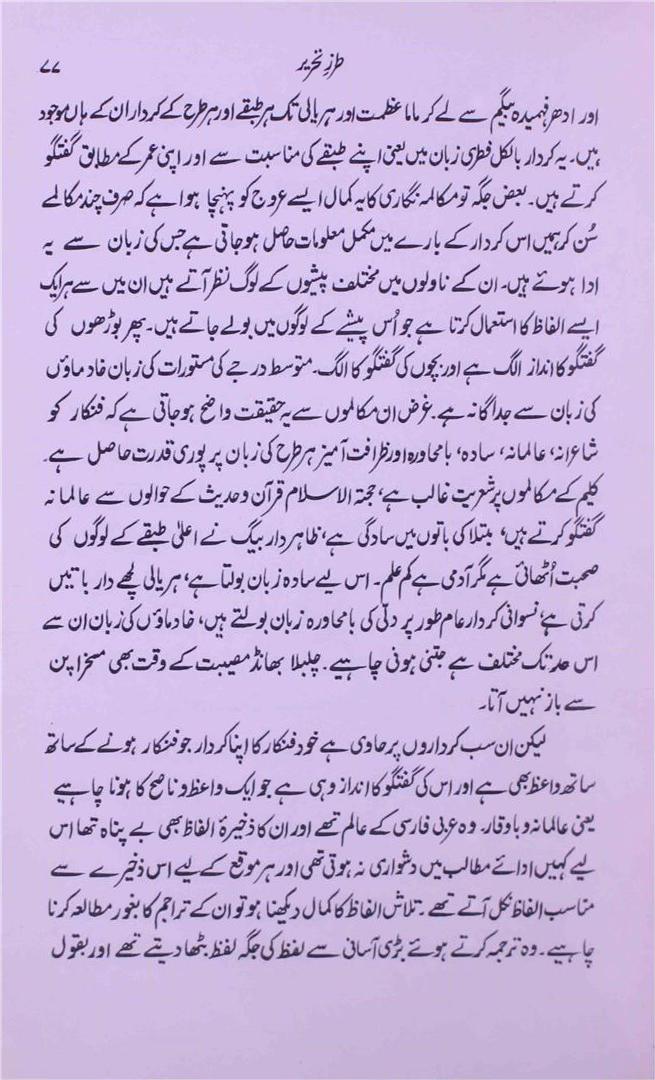 طرزِ تحریر ۷۷
اور ادھر فہمیدہ بیگم سے لے کر ماما عظمت اور ہریالی تک ہر طبقے اور ہر طرح کے کردار ان کے ہاں موجود
ہیں۔ یہ کردار بالکل فطری زبان میں یعنی اپنے طبقے کی مناسبت سے اور اپنی عمر کے مطابق گفتگو
کرتے ہیں۔ بعض جگہ تو مکالمہ نگاری کا یہ کمال ایسے عروج کو پہنچا ہوا ہے کہ صرف چند مکالمے
سُن کر ہمیں اس کردار کے بارے میں مکمل معلومات حاصل ہو جاتی ہے جس کی زبان سے یہ
ادا ہوئے ہیں۔ ان کے ناولوں میں مختلف پیشوں کے لوگ نظر آتے ہیں ان میں سے ہر ایک
ایسے الفاظ کا استعمال کرتا ہے جو اُس پیشے کے لوگوں میں بولے جاتے ہیں۔ پھر بوڑھوں کی
گفتگو کا انداز الگ ہے اور بچوں کی گفتگو کا الگ۔ متوسط درجے کی مستورات کی زبان خادماؤں
کی زبان سے جداگانہ ہے۔ غرض ان مکالموں سے یہ حقیقت واضح ہو جاتی ہے کہ فنکار کو
شاعرانہ، عالمانہ، سادہ، بامحاورہ اور ظرافت آمیز ہر طرح کی زبان پر پوری قدرت حاصل ہے۔
کلیم کے مکالموں پر شعریت غالب ہے، حجتہ الاسلام قرآن و حدیث کے حوالوں سے عالمانہ
گفتگو کرتے ہیں، مبتلا کی باتوں میں سادگی ہے، ظاہر دار بیگ نے اعلیٰ طبقے کے لوگوں کی
صحبت اُٹھائی ہے مگر آدمی ہے کم علم۔ اس لیے سادہ زبان بولتا ہے، ہریالی لچھے دار باتیں
کرتی ہے، نسوانی کردار عام طور پر دلّی کی بامحاورہ زبان بولتے ہیں، خادماؤں کی زبان ان سے
اس حد تک مختلف ہے جتنی ہونی چاہیے۔ چلبلا بھانڈ مصیبت کے وقت بھی مسخراپن
سے باز نہیں آتا۔
لیکن ان سب کرداروں پر حاوی ہے خود فنکار کا اپنا کردار جو فنکار ہونے کے ساتھ
ساتھ واعظ بھی ہے اور اس کی گفتگو کا انداز وہی ہے جو ایک واعظ و ناصح کا ہونا چاہیے
یعنی عالمانہ و باوقار۔ وہ عربی فارسی کے عالم تھے اور ان کا ذخیرۂ الفاظ بھی بے پناہ تھا اس
لیے کہیں ادائے مطالب میں دشواری نہ ہوتی تھی اور ہر موقع کے لیے اس ذخیرے سے
مناسب الفاظ نکل آتے تھے۔ تلاشِ الفاظ کا کمال دیکھنا ہو تو ان کے تراجم کا بغور مطالعہ کرنا
چاہیے۔ وہ ترجمہ کرتے ہوئے بڑی آسانی سے لفظ کی جگہ لفظ بٹھا دیتے تھے اور بقول